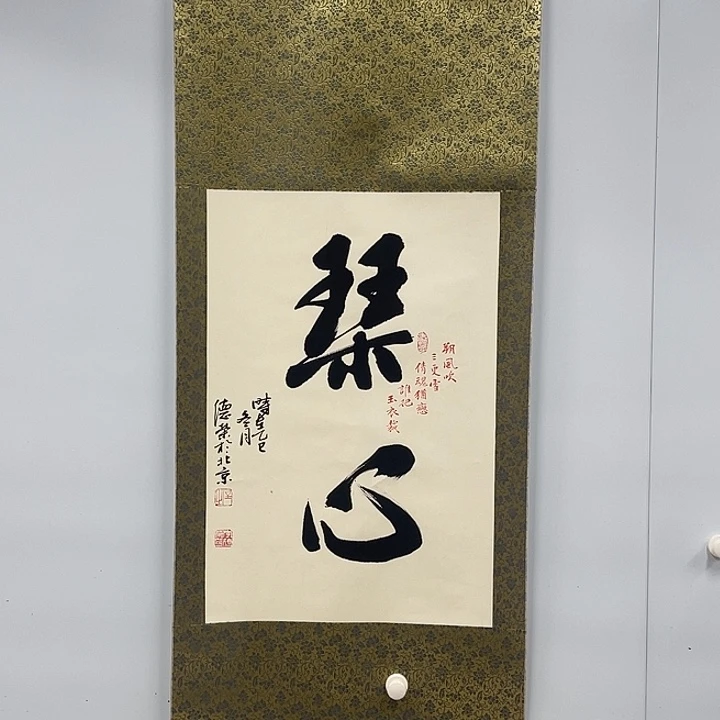 琴心
朔風吹
三更雪
倩魂猶戀
誰把
玉衣裁
乙巳
冬月
德榮於北京